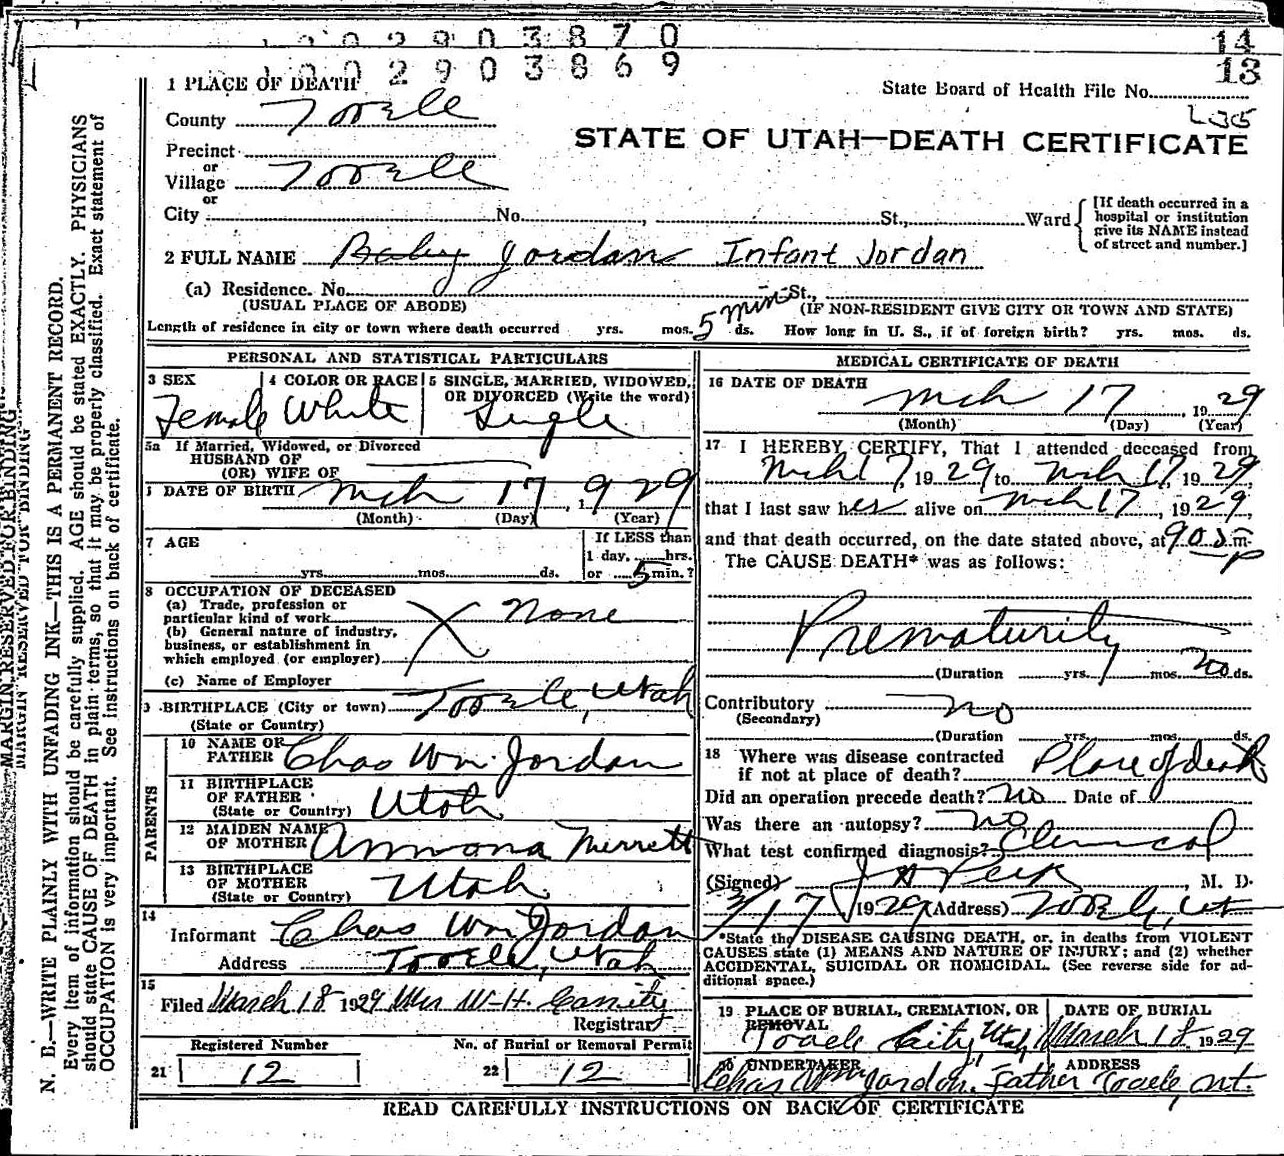 1 0 0 2 9 0 3 8 7 0 14
1 0 0 2 9 0 3 8 6 9 13
1 PLACE OF DEATH State Board of Health File No.
County Tooele
STATE OF UTAH—DEATH CERTIFICATE
Precinct
or
Village Tooele
or
City No. , St., Ward
[If death occurred in a
hospital or institution
give its NAME instead
of street and number.]
2 FULL NAME Baby Jordan Infant Jordan
(a) Residence. No. St.,
(USUAL PLACE OF ABODE) (IF NON-RESIDENT GIVE CITY OR TOWN AND STATE)
Length of residence in city or town where death occurred yrs. mos. 5 min ds. How long in U. S., if of foreign birth? yrs. mos. ds.
PERSONAL AND STATISTICAL PARTICULARS
3 SEX
Female
4 COLOR OR RACE
White
5 SINGLE, MARRIED, WIDOWED,
OR DIVORCED (Write the word)
Single
5a If Married, Widowed, or Divorced
HUSBAND OF
(OR) WIFE OF
DATE OF BIRTH Mch 17, 1929
(Month) (Day) (Year)
7 AGE
yrs. mos. ds.
If LESS than
1 day, hrs.
or 5 min.?
8 OCCUPATION OF DECEASED
(a) Trade, profession or
particular kind of work None
(b) General nature of industry,
business, or establishment in
which employed (or employer)
(c) Name of Employer
BIRTHPLACE (City or town) Tooele, Utah
(State or Country)
PARENTS
10 NAME OF
FATHER Chas Wm Jordan
11 BIRTHPLACE
OF FATHER
(State or Country) Utah
12 MAIDEN NAME
OF MOTHER Ammona Merrett
13 BIRTHPLACE
OF MOTHER
(State or Country) Utah
14
Informant Chas Wm Jordan
Address Tooele, Utah
15
Filed March 18 1929 Mrs W. H. Cassity
Registrar
Registered Number No. of Burial or Removal Permit
21 12 22 12
MEDICAL CERTIFICATE OF DEATH
16 DATE OF DEATH
Mch 17, 1929
(Month) (Day) (Year)
17 I HEREBY CERTIFY, That I attended deceased from
Mch 17, 1929 to Mch 17, 1929,
that I last saw her alive on Mch 17, 1929,
and that death occurred, on the date stated above, at m.
The CAUSE DEATH* was as follows:
Prematurity
(Duration yrs. mos. no ds.
Contributory no
(Secondary)
(Duration yrs. mos. ds.
18 Where was disease contracted
if not at place of death? Place of death
Did an operation precede death? no Date of
Was there an autopsy? no
What test confirmed diagnosis? Clinical
(Signed) J A Peck, M. D.
3/17 1929 (Address) Tooele, Ut
*State the DISEASE CAUSING DEATH, or, in deaths from VIOLENT
CAUSES state (1) MEANS AND NATURE OF INJURY; and (2) whether
ACCIDENTAL, SUICIDAL OR HOMICIDAL. (See reverse side for ad-
ditional space.)
19 PLACE OF BURIAL, CREMATION, OR
REMOVAL
Tooele City, Utah
DATE OF BURIAL
March 18, 1929
20 UNDERTAKER ADDRESS
Chas Wm Jordan. Father Tooele, Ut.
READ CAREFULLY INSTRUCTIONS ON BACK OF CERTIFICATE
MARGIN RESERVED FOR BINDING
MARGIN RESERVED FOR BINDING
N. B.—WRITE PLAINLY WITH UNFADING INK—THIS IS A PERMANENT RECORD.
Every item of information should be carefully supplied. AGE should be stated EXACTLY. PHYSICIANS
should state CAUSE OF DEATH in plain terms, so that it may be properly classified. Exact statement of
OCCUPATION is very important. See instructions on back of certificate.